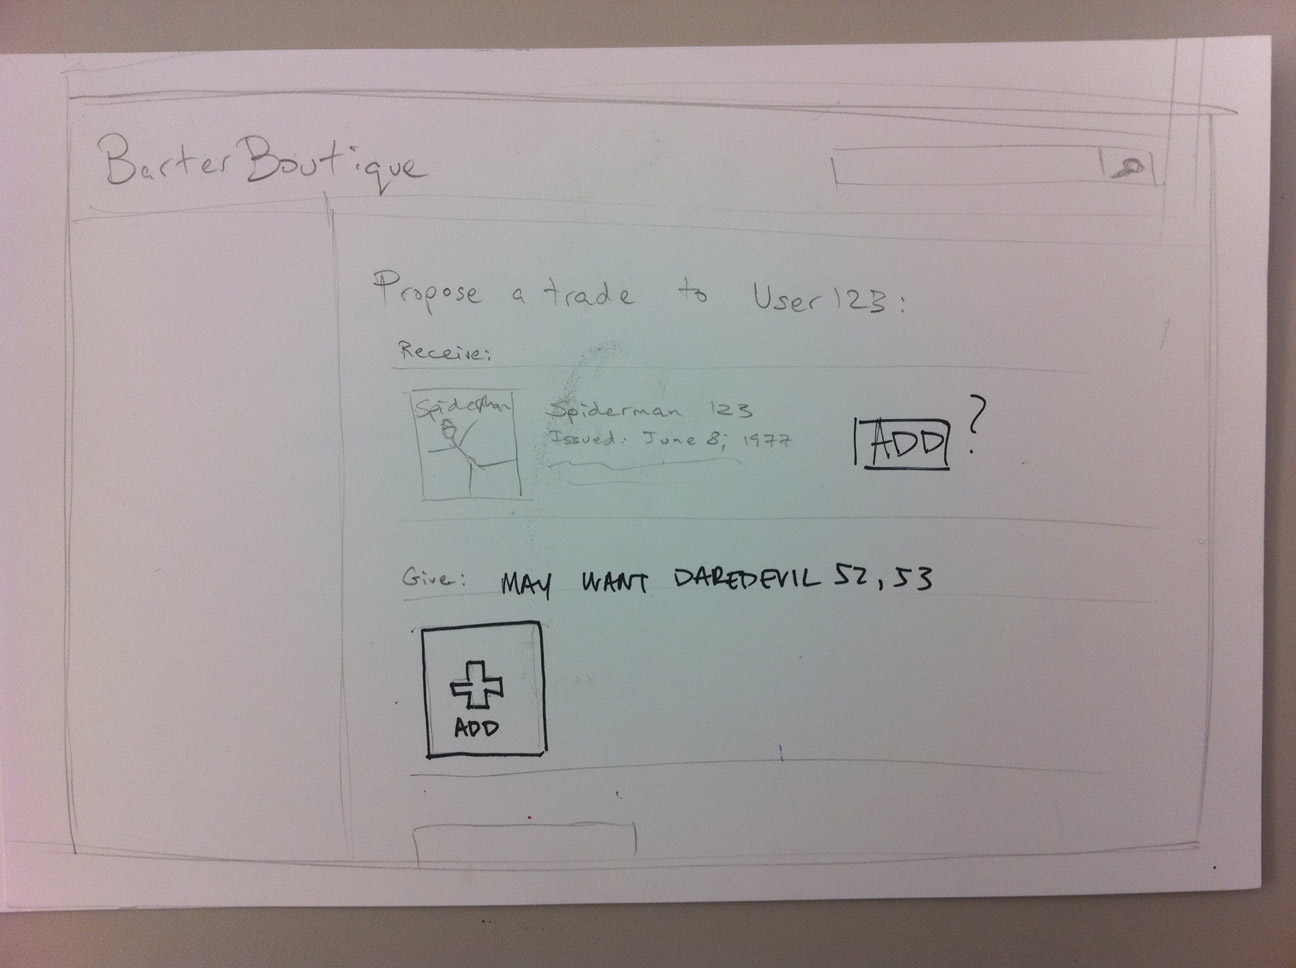 BarterBoutique
Propose a trade to User123:
Receive:
Spiderman
Spiderman 123
Issued: June 8, 1977
ADD ?
Give: MAY WANT DAREDEVIL 52, 53
ADD